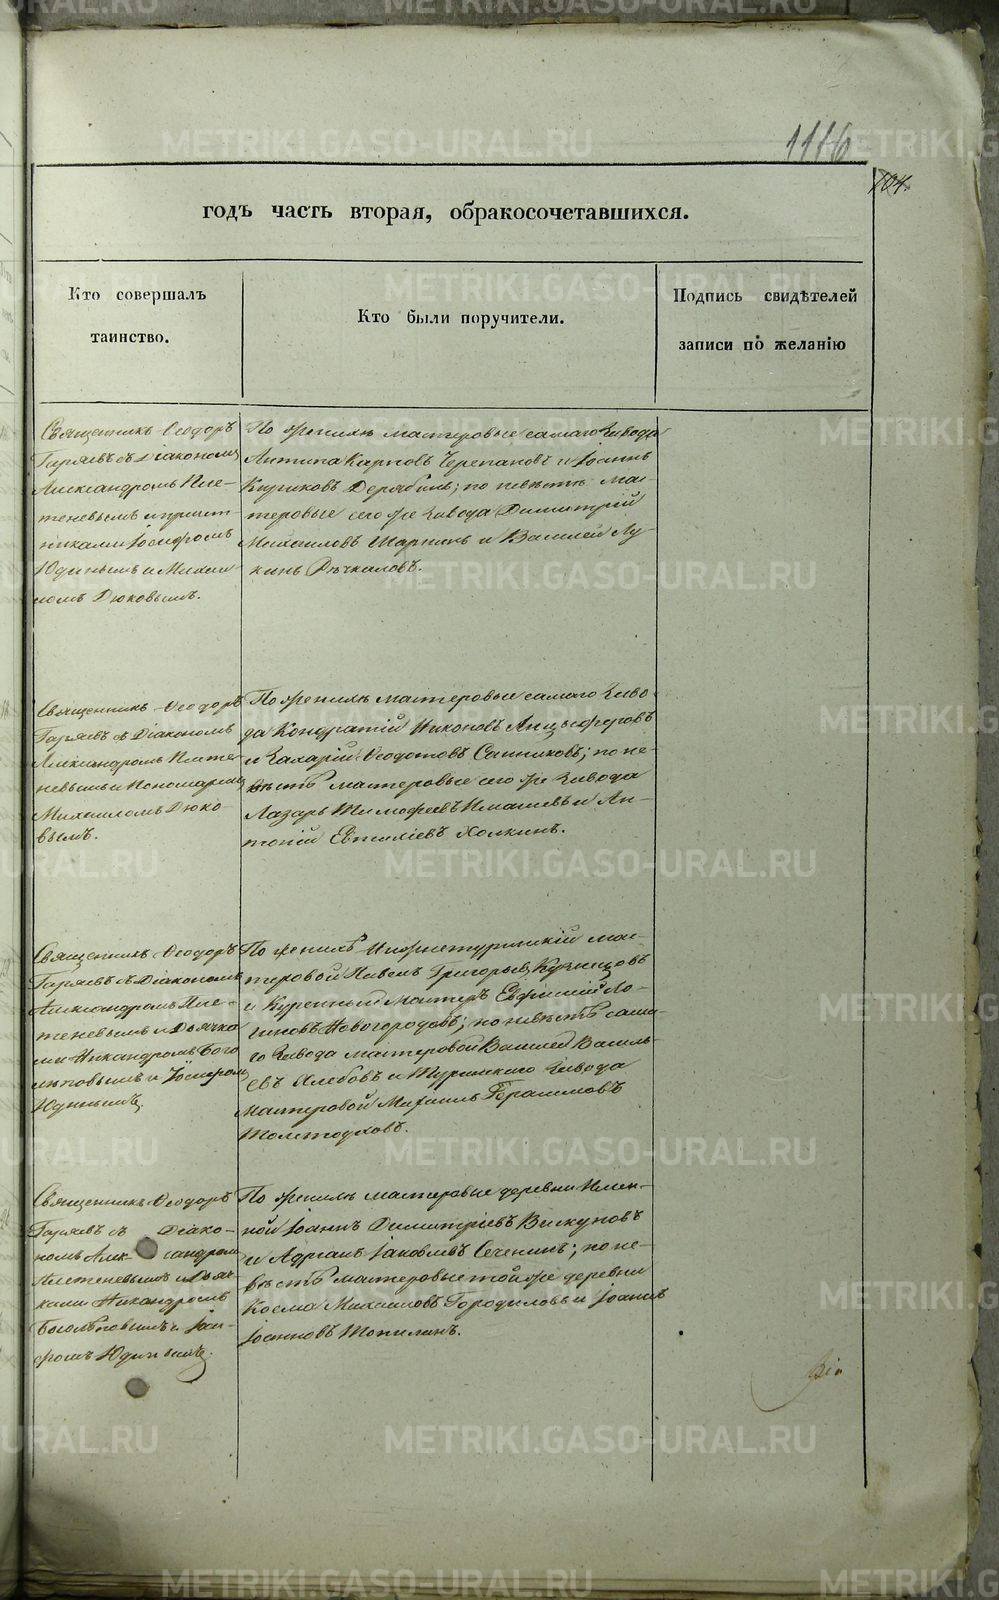 1116
104.
годъ часть вторая, обракосочетавшихся.
Кто совершалъ
таинство.
Кто были поручители.
Подпись свидѣтелей
записи по желанію
Священникъ Ѳеодоръ
Гаряевъ съ Діакономъ
Александромъ Пле-
теневымъ и причет-
никами Іосифомъ
Юдинымъ и Михаи-
ломъ Дюковымъ.
По женихѣ мастеровые самаго завода
Антипа Карповъ Черепановъ и Іоаннъ
Кириковъ Дерябинъ; по невѣстѣ мас-
теровые сего же завода Димитрій
Михаиловъ Шарпинъ и Василей Лу-
кинъ Рѣчкаловъ.
Священникъ Ѳеодоръ
Гаряевъ съ Діакономъ
Александромъ Плете-
невымъ и Пономаремъ
Михаиломъ Дюко-
вымъ.
По женихѣ мастеровые самаго заво-
да Кондратій Никоновъ Анцыферовъ
и Захарій Ѳеодотовъ Санниковъ; по не-
вѣстѣ мастеровые сего же завода
Лазарь Тимофеевъ и Ан-
тоній Евтихіевъ Холкинъ.
Священникъ Ѳеодоръ
Гаряевъ съ Діакономъ
Александромъ Пле-
теневымъ и Дьячка-
ми Никандромъ Бого-
лѣповымъ и Іосифомъ
Юдинымъ.
По женихѣ Нижнетуринскій мас-
теровой Павелъ Григорьевъ Кузнецовъ
и Куренный Мастеръ Евфимій Ло-
гиновъ Новогородовъ; по невѣстѣ сама-
го завода мастеровой Василей Василь-
евъ Хлебовъ и Туринскаго завода
мастеровой Михаилъ Герасимовъ
Толстоуховъ.
Священникъ Ѳеодоръ
Гаряевъ съ Діако-
номъ Александромъ
Плетеневымъ и Дьяч-
ками Никандромъ
Боголѣповымъ и Іоси-
фомъ Юдинымъ.
По женихѣ мастеровые деревни Имен-
ной Іоаннъ Димитріевъ Вискуновъ
и Адріанъ Іаковлевъ Сеченинъ; по не-
вѣстѣ мастеровые той же деревни
Косма Михаиловъ Городиловъ и Іоаннъ
Іоанновъ Топилинъ.
Діа
METRIKI.GASO-URAL.RU